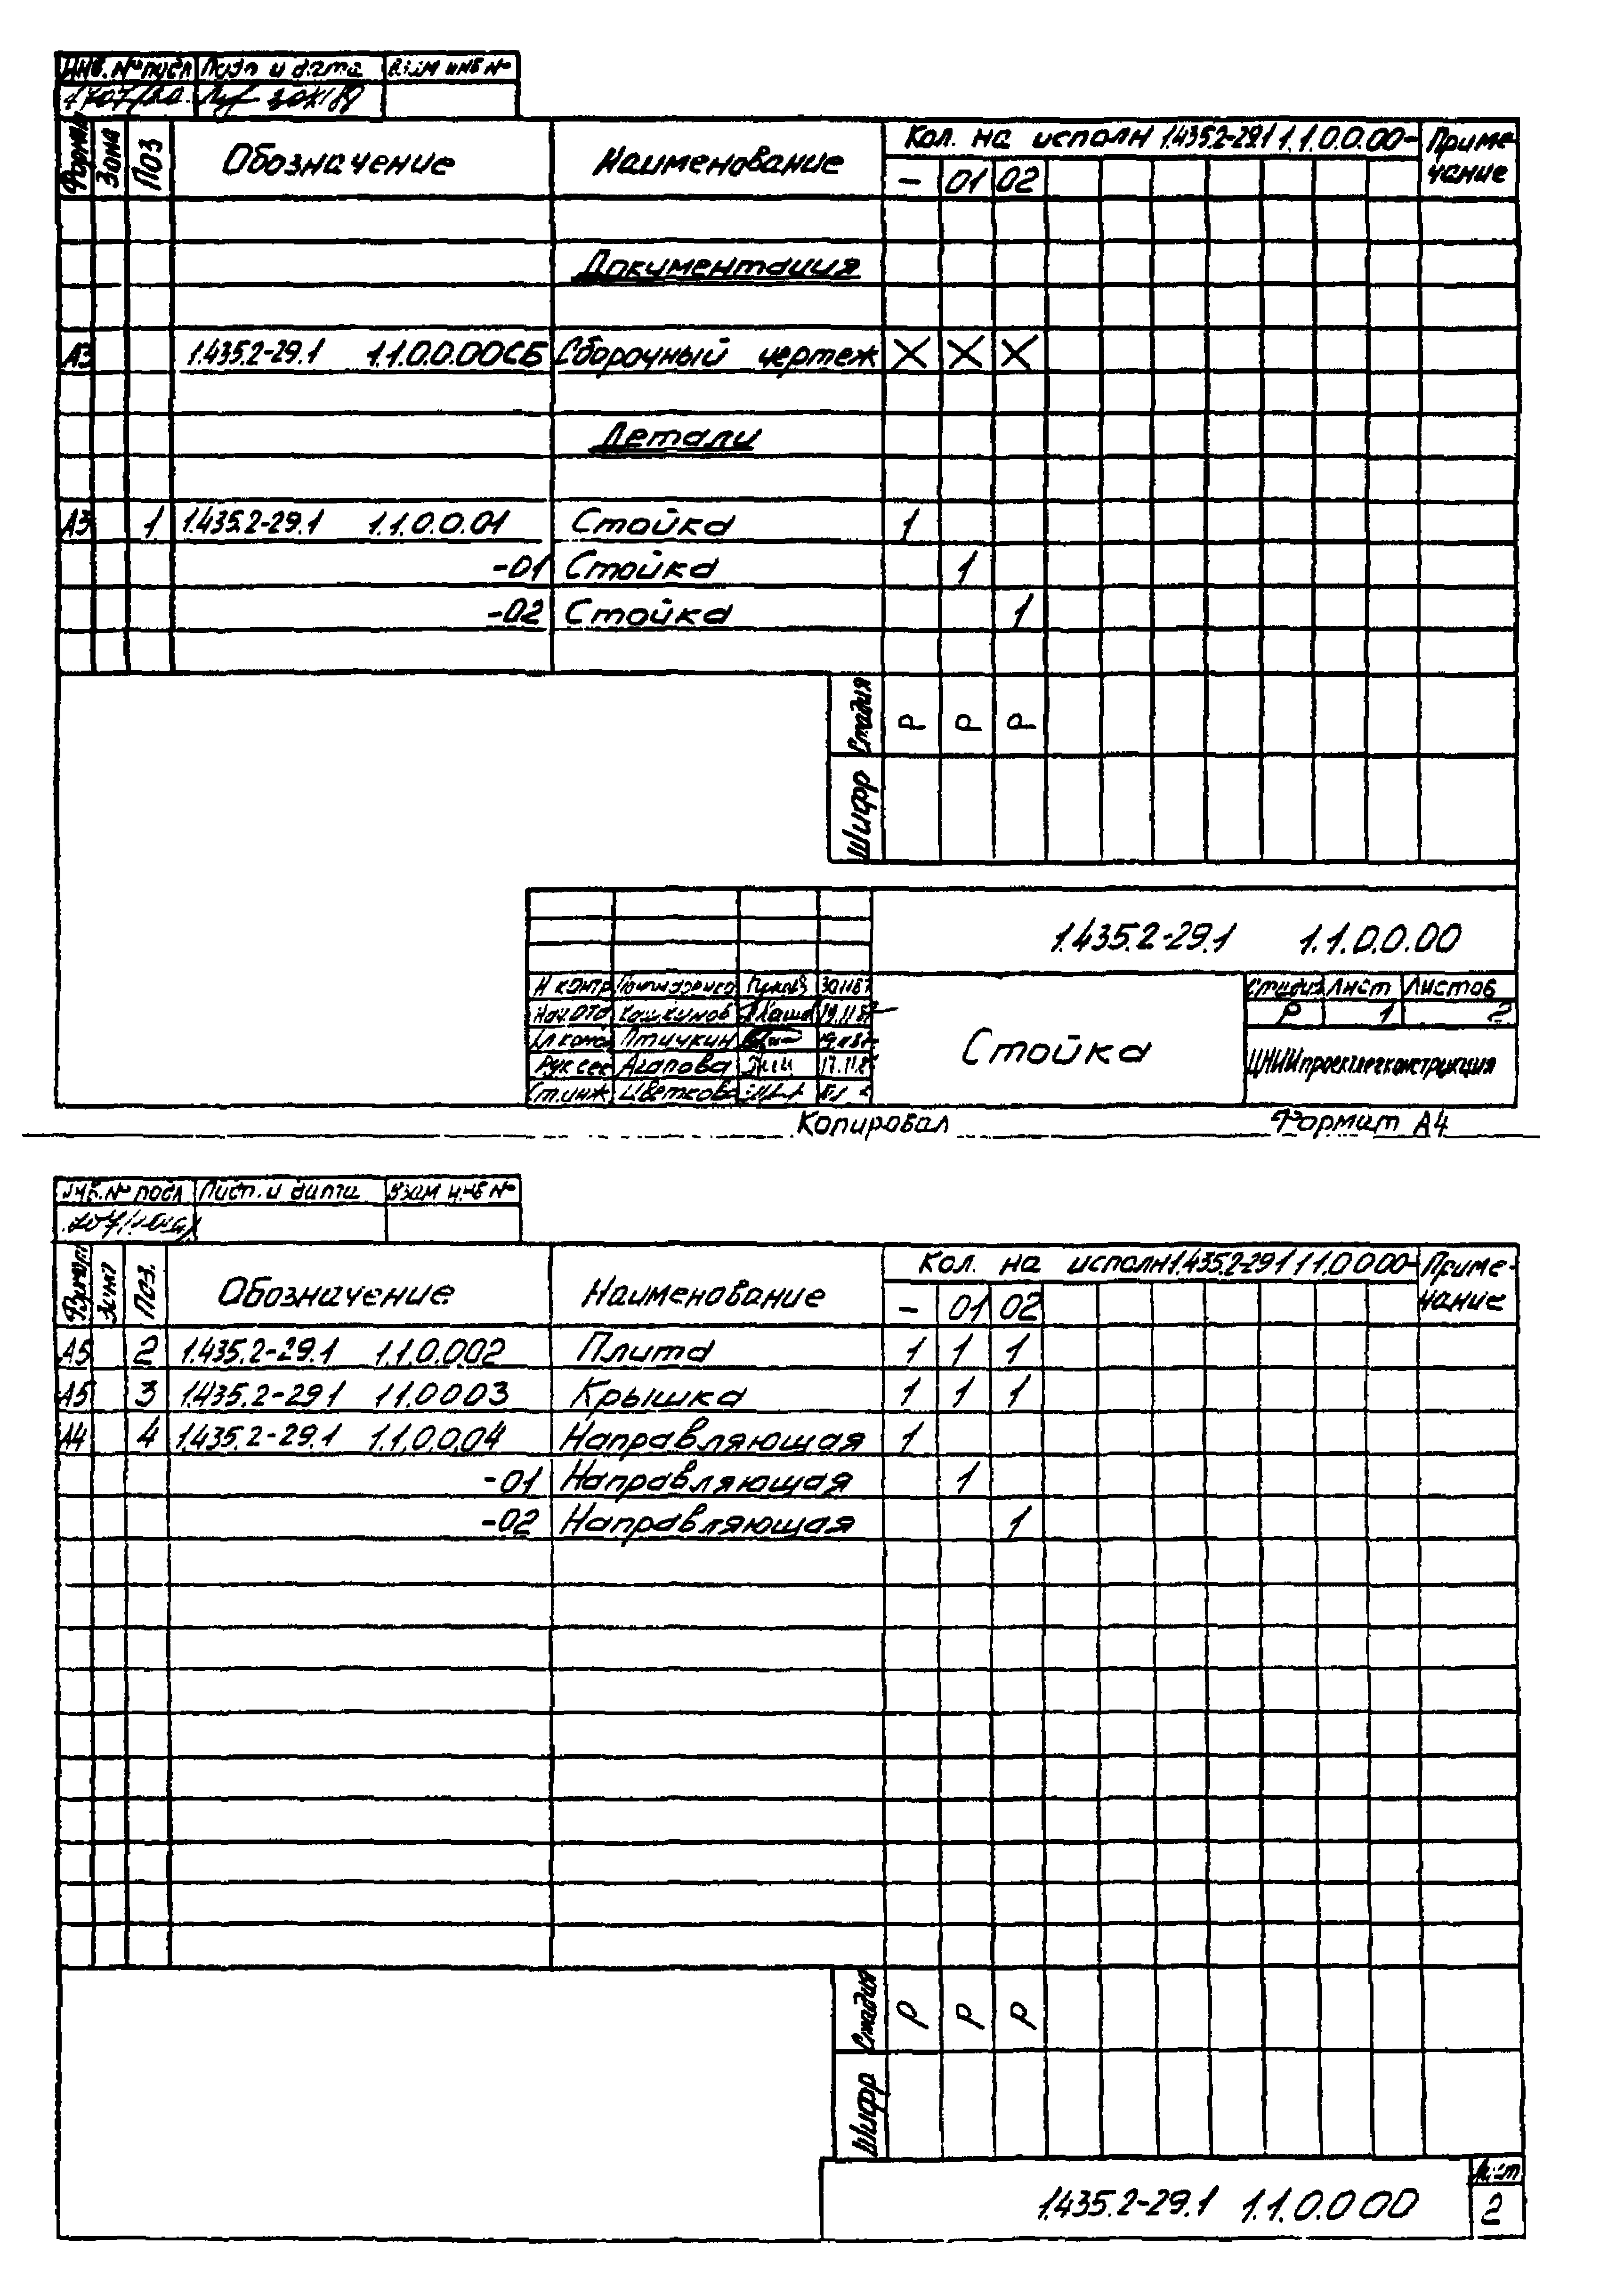 Инв. № подл Подп и дата Взам инв №
Формат Зона Поз Обозначение Наименование Кол. на исполн 1.435.2-29.1 1.1.0.0.00- Приме-
чание
- 01 02
Документация
А3 1.435.2-29.1 1.1.0.0.00СБ Сборочный чертеж X X X
Детали
А3 1 1.435.2-29.1 1.1.0.0.01 Стойка 1
-01 Стойка 1
-02 Стойка 1
Стадия Р Р Р
Шифр
1.435.2-29.1 1.1.0.0.00
Н контр
Нач ОТД Кашкунов
Птичкин
Рук сек Агапова
Ст.инж Цветкова
Стойка
Стадия Лист Листов
Р 1 2
ЦНИИпроектлегконструкция
Копировал Формат А4
Инв. № подл Подп. и дата Взам инв №
Формат Зона Поз. Обозначение Наименование Кол. на исполн 1.435.2-29.1 1.1.0.0.00- Приме-
чание
- 01 02
А5 2 1.435.2-29.1 1.1.0.002 Плита 1 1 1
А5 3 1.435.2-291 11.0003 Крышка 1 1 1
А4 4 1.435.2-29.1 1.1.0.0.04 Направляющая 1
-01 Направляющая 1
-02 Направляющая 1
Стадия Р Р Р
Шифр
1.435.2-29.1 1.1.0.0 00
Лист
2